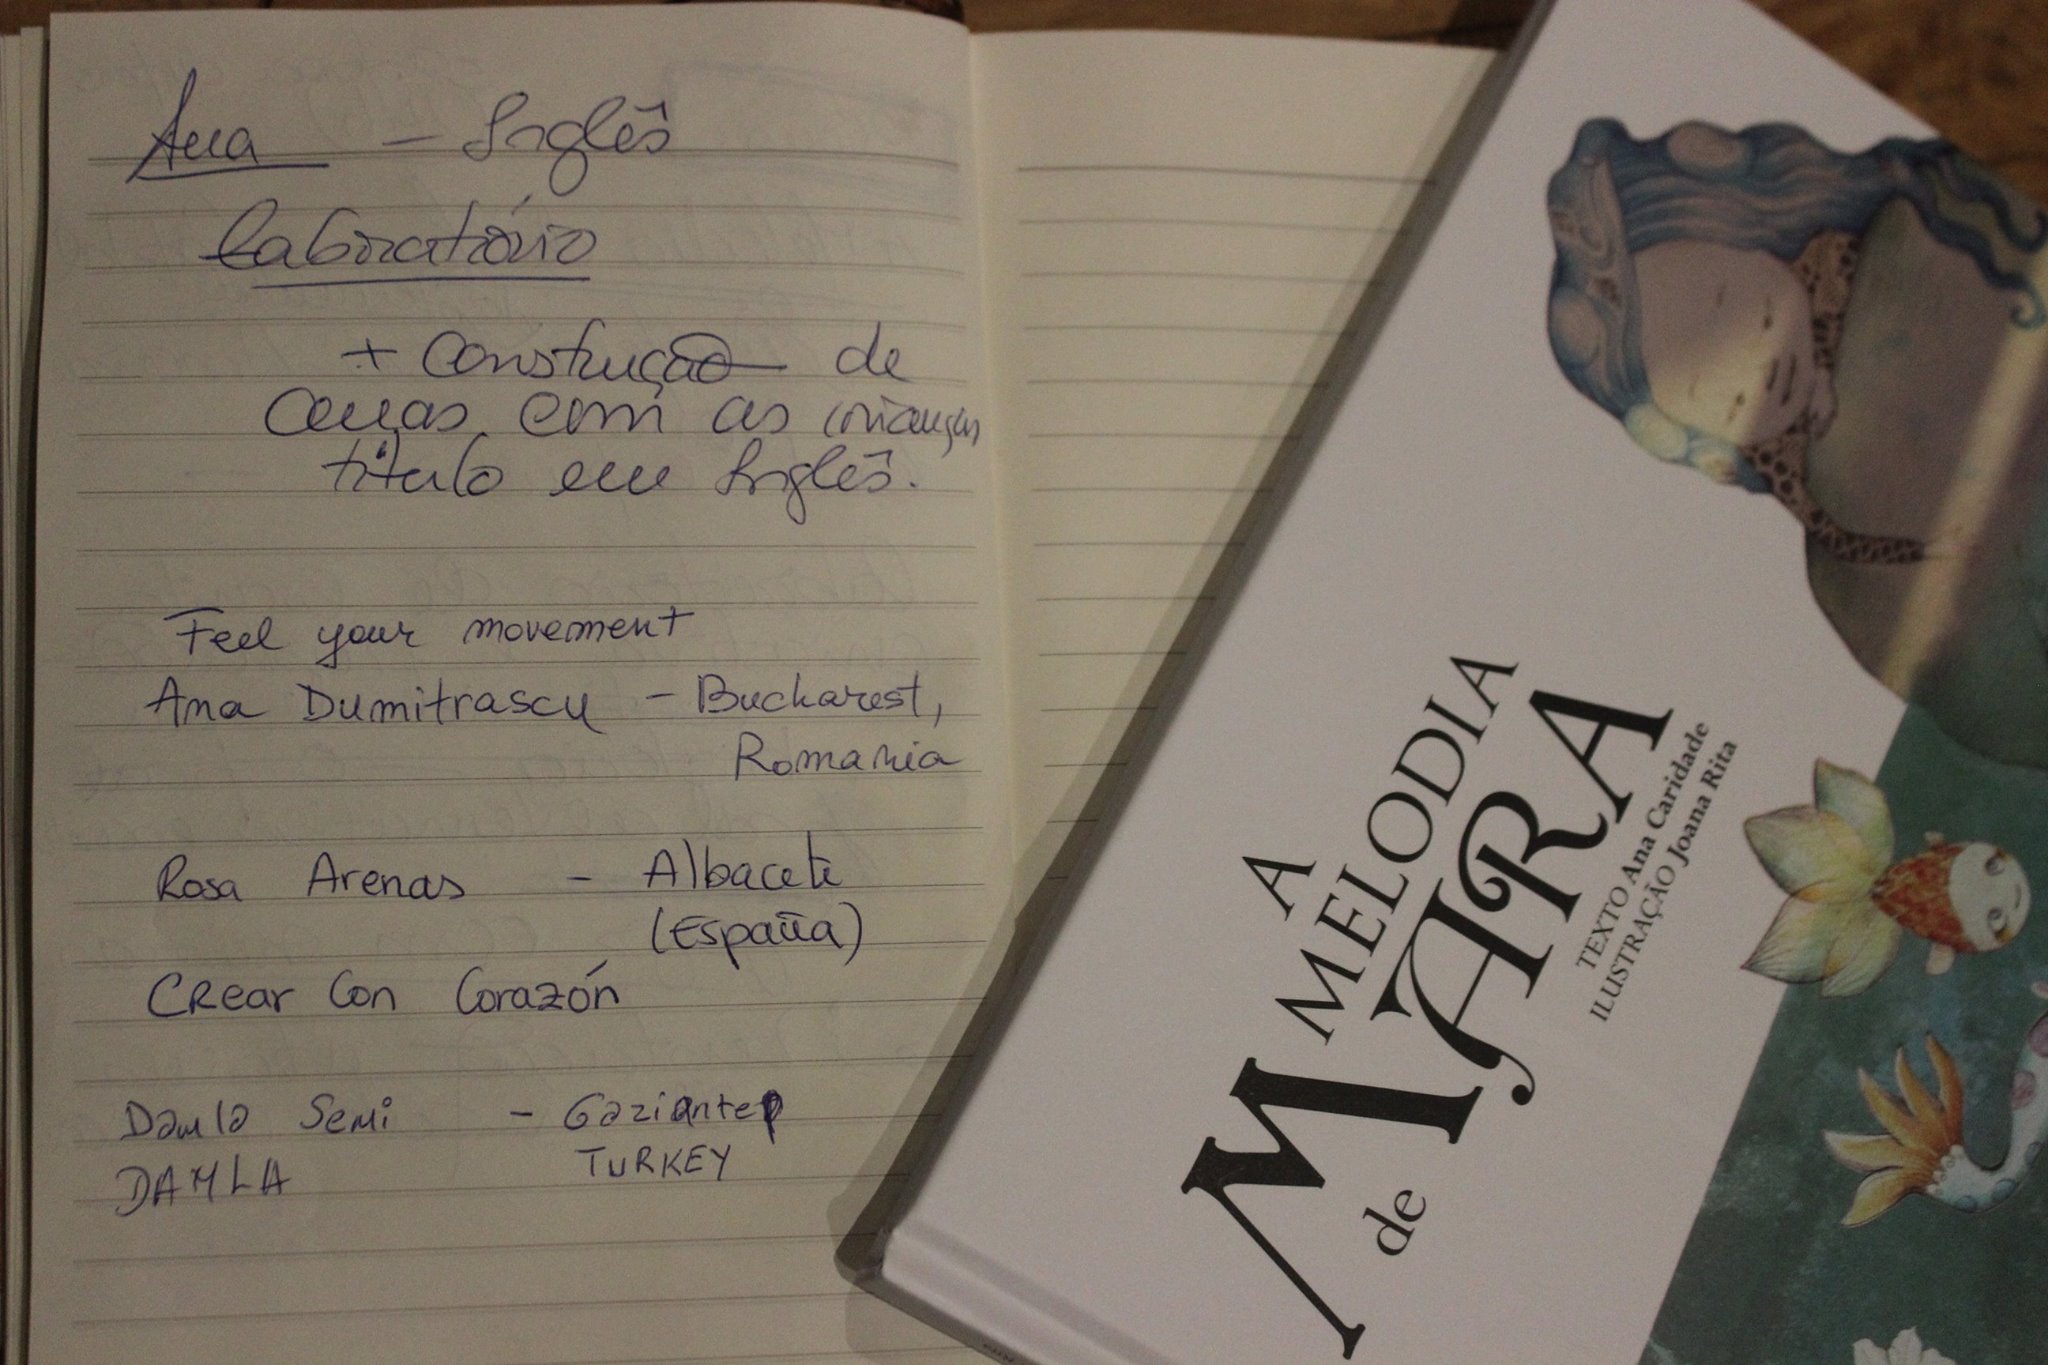 Ana — Inglês
Laboratório
+ Construção de
Cenas com as crianças
título em Inglês.
Feel your movement
Ana Dumitrascu — Bucharest,
Romania
Rosa Arenas — Albacete
(España)
Crear Con Corazón
Damla Semi — Gaziantep
DAMLA TURKEY
A
MELODIA
de MARA
TEXTO Ana Caridade
ILUSTRAÇÃO Joana Rita